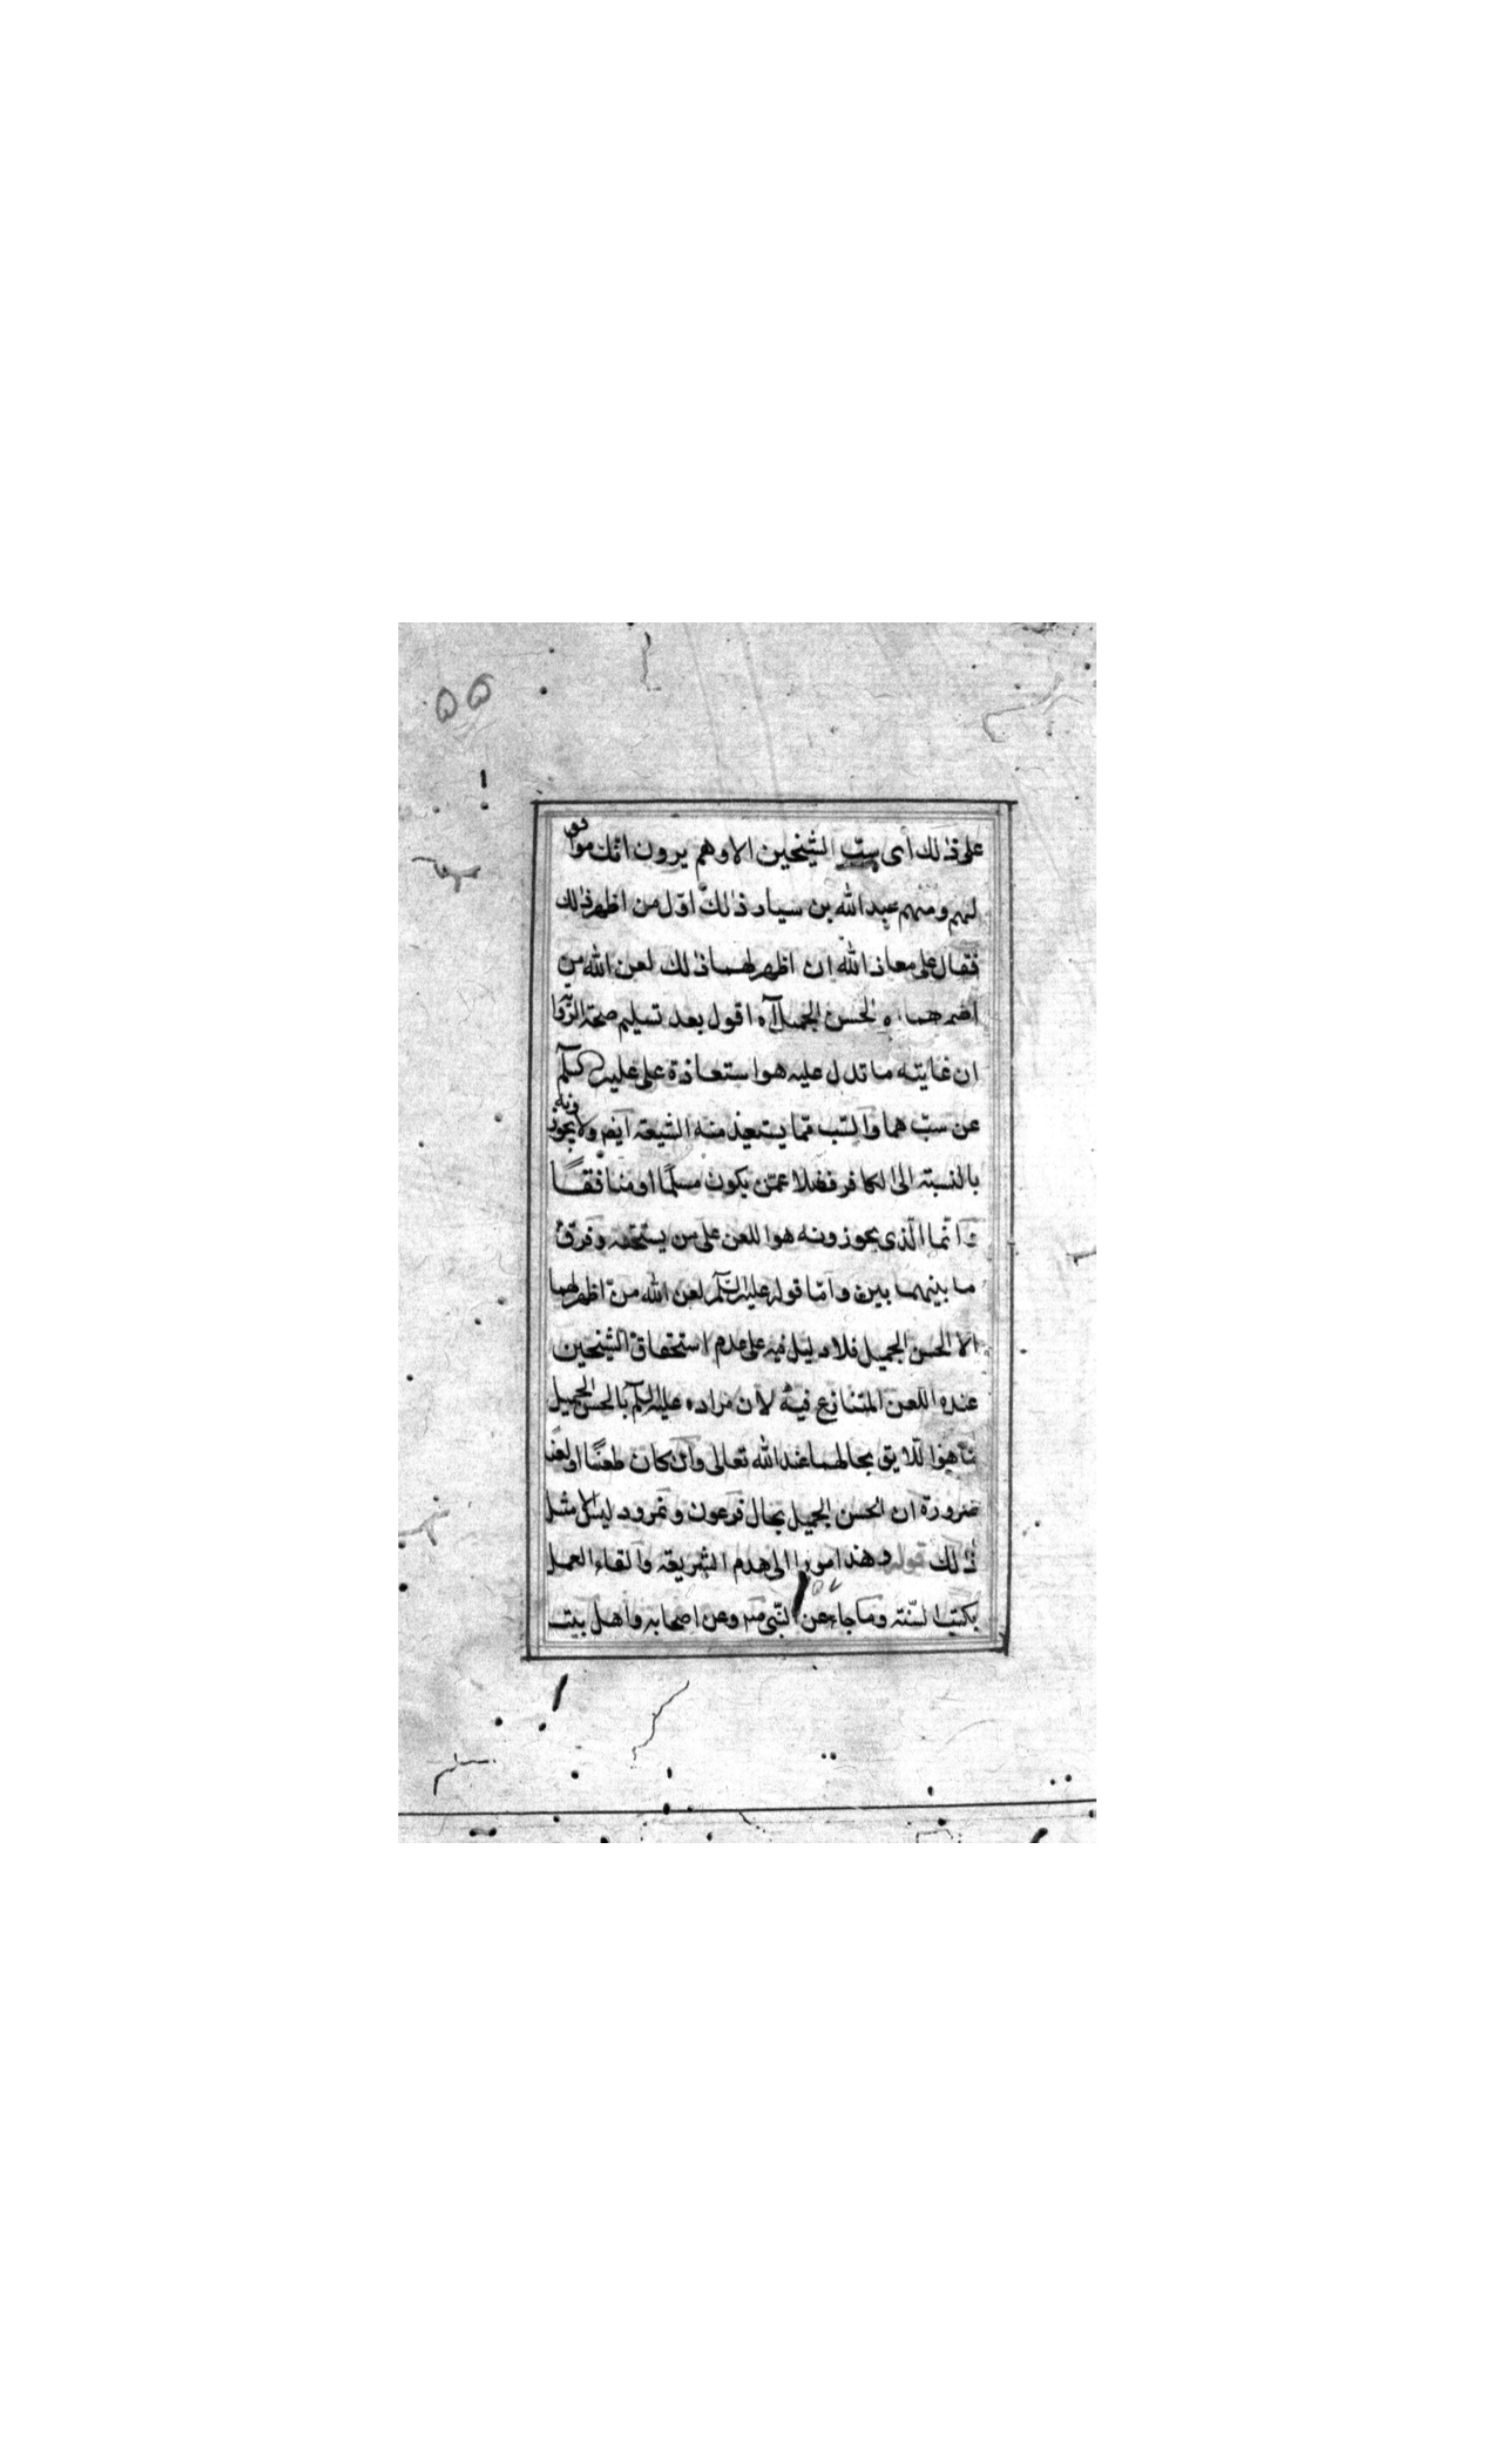 ۵۵
على ذلك أى سبّ الشيخين الا وهم يرون انك موافق
لهم ومنهم عبد الله بن سبا وذلك اوّل من اظهر ذلك
فقال على معاذ الله ان اظهر لهما ذلك لعن الله من
اضمر لهما الا الحسن الجميل آه اقول بعد تسليم صحة الرواية
ان غاية ما تدل عليه هو استعاذة على عليه السلام
عن سبّهما والسب ممّا يستعيذ منه الشيعة ايضا ولا يجوزونه
بالنسبة الى الكافر فضلا عمّن يكون مسلمًا او منافقًا
وانّما الّذى يجوزونه هو اللعن على من يستحقه وفرق
ما بينهما بيّن وامّا قوله عليه السّلم لعن الله من اظهر لهما
الا الحسن الجميل فلا دليل فيه على عدم استحقاق الشيخين
عنده اللعن المتنازع فيه لان مراده عليه السلم بالحسن الجميل
ما هو اللايق بحالهما عند الله تعالى وان كان طعنًا او لعنا
ضرورة ان الحسن الجميل بحال فرعون ونمرود ليس الا مثل
ذلك قوله وهذا موٍ الى هدم الشريعة والقاء العمل
بكتب السّنة وما جاء عن النّبى ص وعن اصحابه واهل بيت